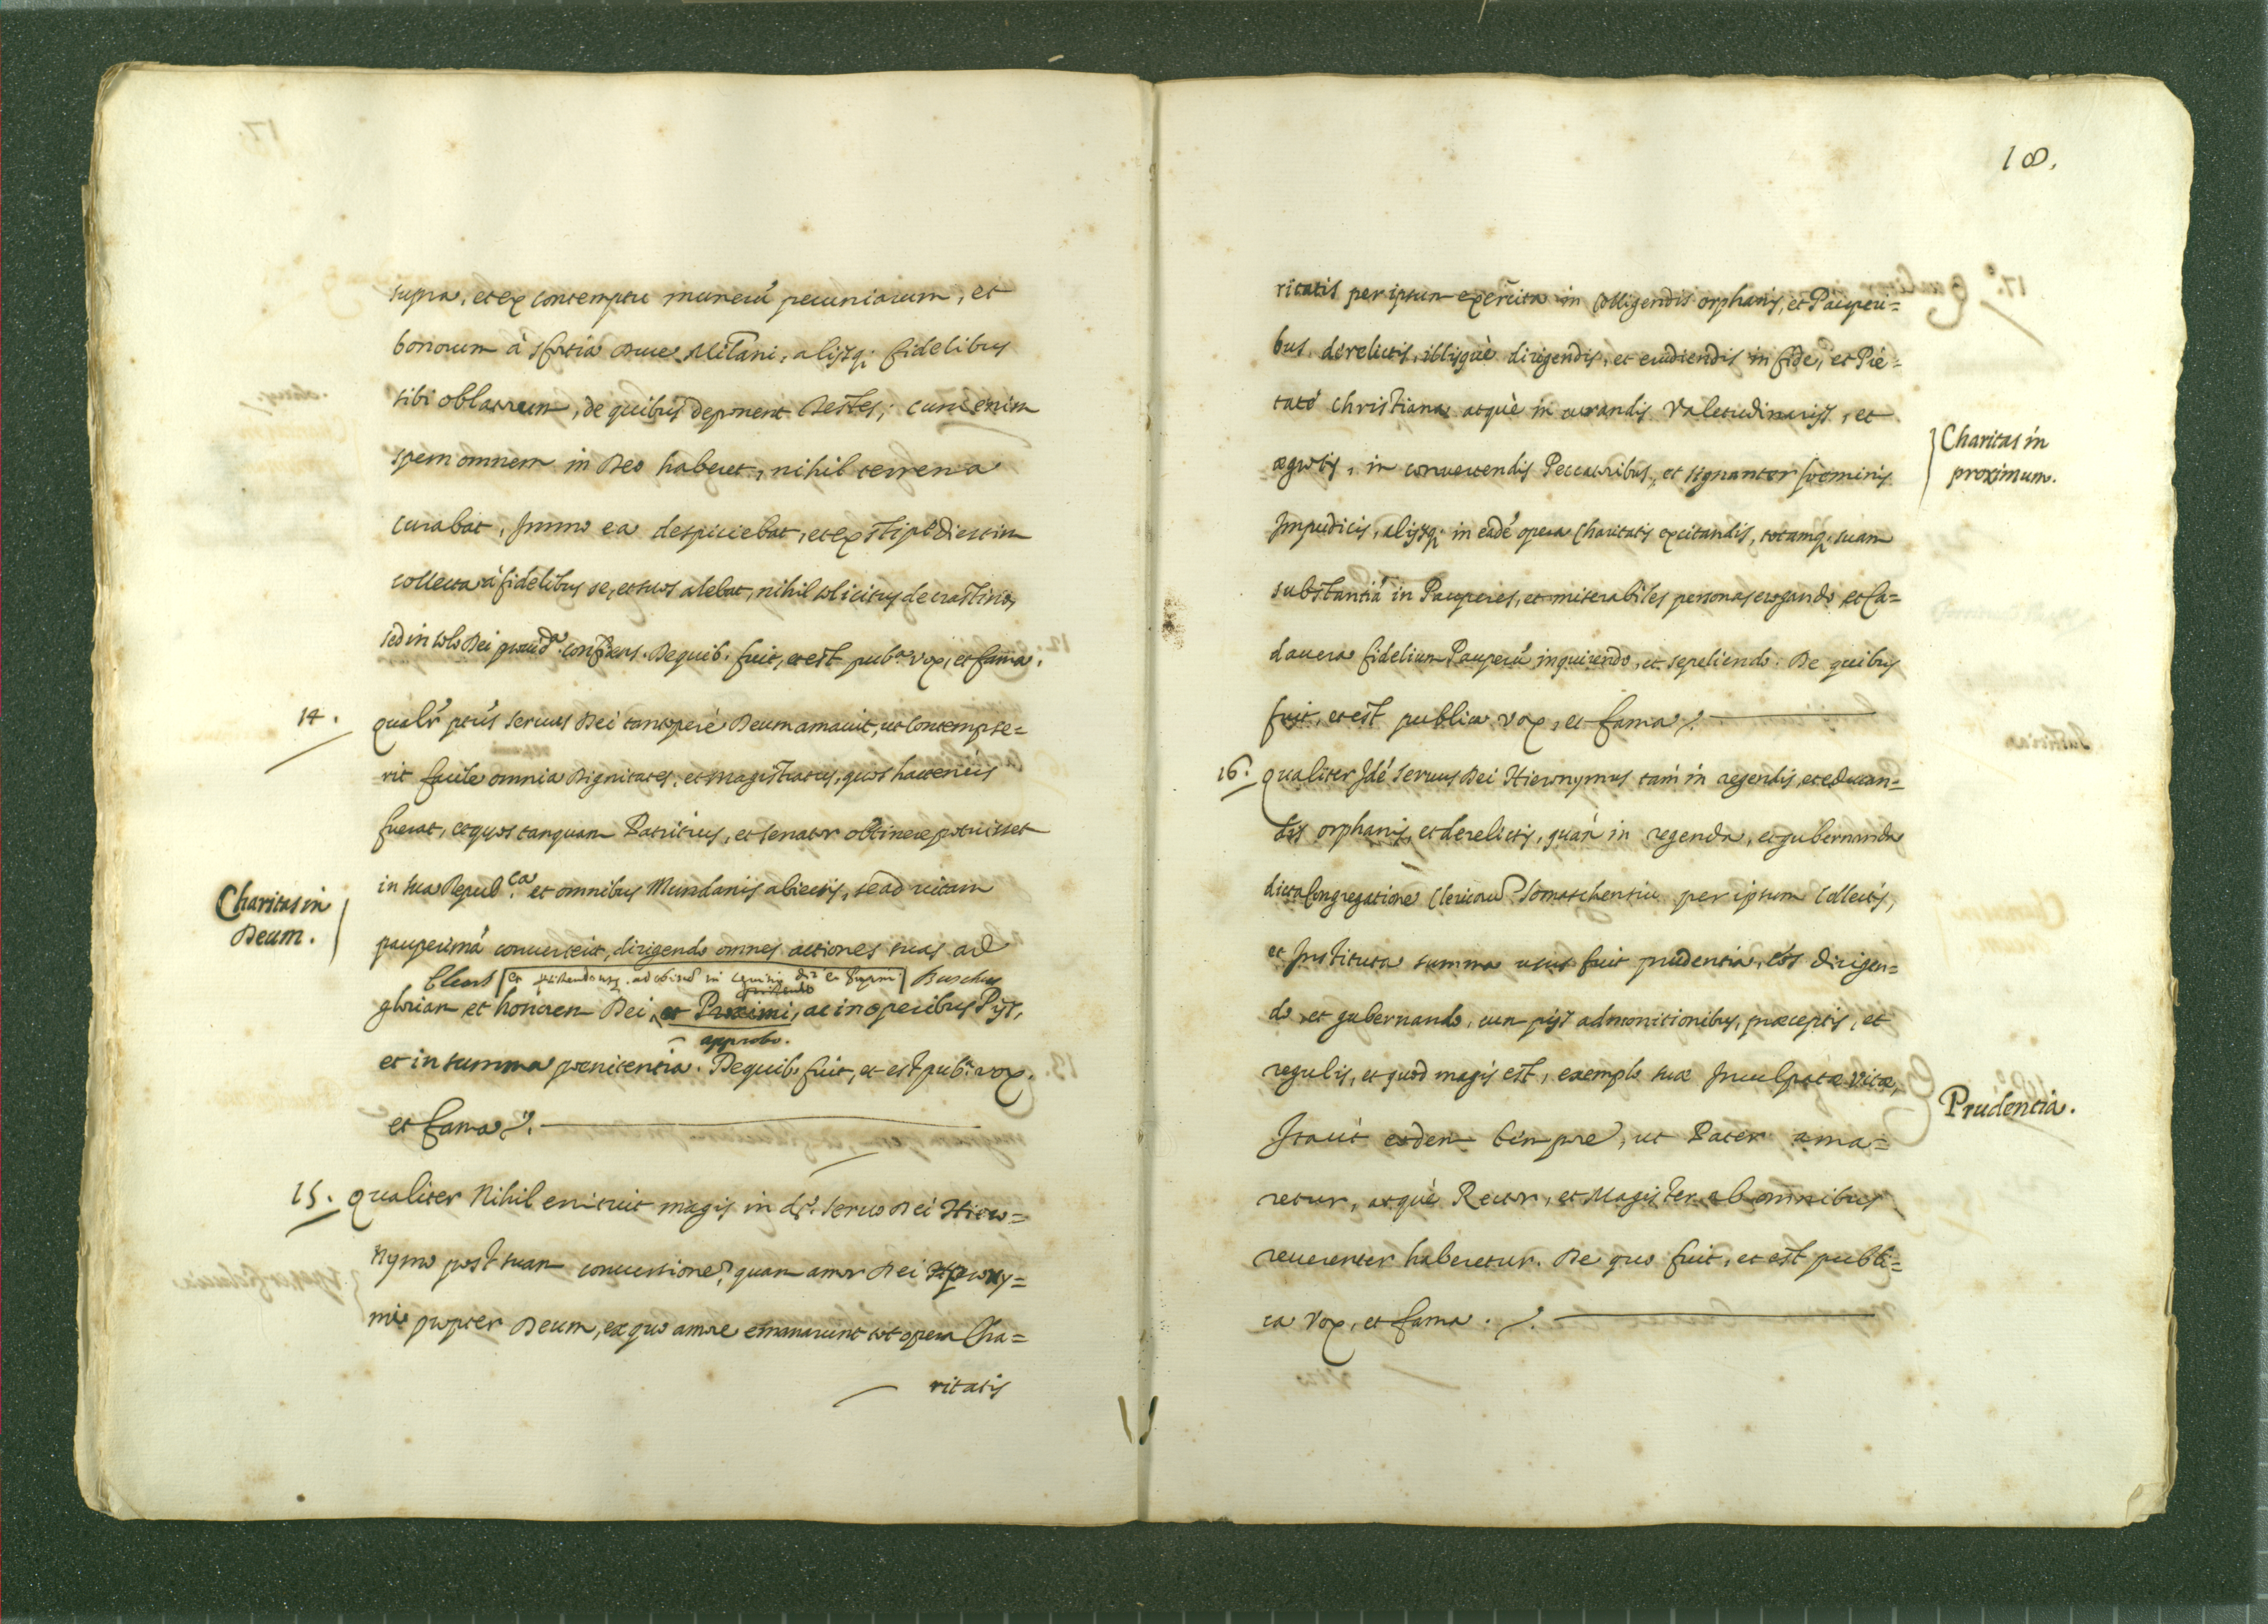 supra, et ex contemptu munerũ pecuniarum, et
bonorum à Sfortia Duce Milani, alijsq; fidelibus
sibi oblatarum, de quibus deponent Testes; cum enim
spem omnem in Deo haberet, nihil terrena
curabat, Immo ea despiciebat, et ex stipe dietim
collecta à fidelibus se, et suos alebat, nihil solicitus de crastino,
sed in solo Dei prouid.ª confisus. De quib. fuit, et est pub.ª vox, et fama.
14. Qualr̃ ptũs seruus Dei tantoperè Deum amauit, ut contempse=
rit facile omnia Dignitates, et Magistratus, quos hactenùs
fuerat, et quos tanquam Patritius, et Senator obtinere potuisset
in sua Repub.ca et omnibus Mundanis abiectis, se ad uitam
Charitas in
Deum.
pauperimã conuerterit, dirigendo omnes actiones suas ad
gloriam et honorem Dei, et Proximi, ac in operibus Pijs,
approbo.
et in summa pœnitentia. De quib. fuit, et est pub.ª vox,
et fama.
15. Qualiter Nihil enituit magis in d.º Seruo Dei Hiero=
nymo post suam conuersionẽ, quam amor Dei
propter Deum, ex quo amore emanarunt tot opera Cha=
ritatis
18.
ritatis per ipsum exercita in colligendis orphanis, et Pauperi=
bus derelictis, illisquè dirigendis, et erudiendis in fide, et Pie=
tatẽ Christiana, atquè in curandis Valetudinarijs, et
Charitas in
proximum.
ægrotis, in conuertendis Peccatoribus, et signanter fœminis
Impudicis, alijsq; in eadẽ opera Charitatis excitandis, totamq; suam
substantiã in Pauperes, et miserabiles personas erogando, et Ca=
dauera fidelium Pauperũ inquirendo, et sepeliendo. De quibus
fuit, et est publica vox, et fama.
16. Qualiter Idẽ Seruus Dei Hieronymus tam in regendis, et educan=
dis orphanis, et derelictis, quàm in regenda, et gubernanda
dicta Congregatione Clericorũ Somaschensiũ per ipsum Collectis,
et Instituta summa usus fuit prudentia, eos dirigen=
do et gubernando, cum pijs admonitionibus, præceptis, et
regulis, et quod magis est, exemplo suæ Inculpatæ Vitæ,
Prudentia.
Itaut eodem tempore, ut Pater ama=
retur, atquè Rector, et Magister ab omnibus
reuerenter haberetur. De quo fuit, et est publi=
ca vox, et fama.